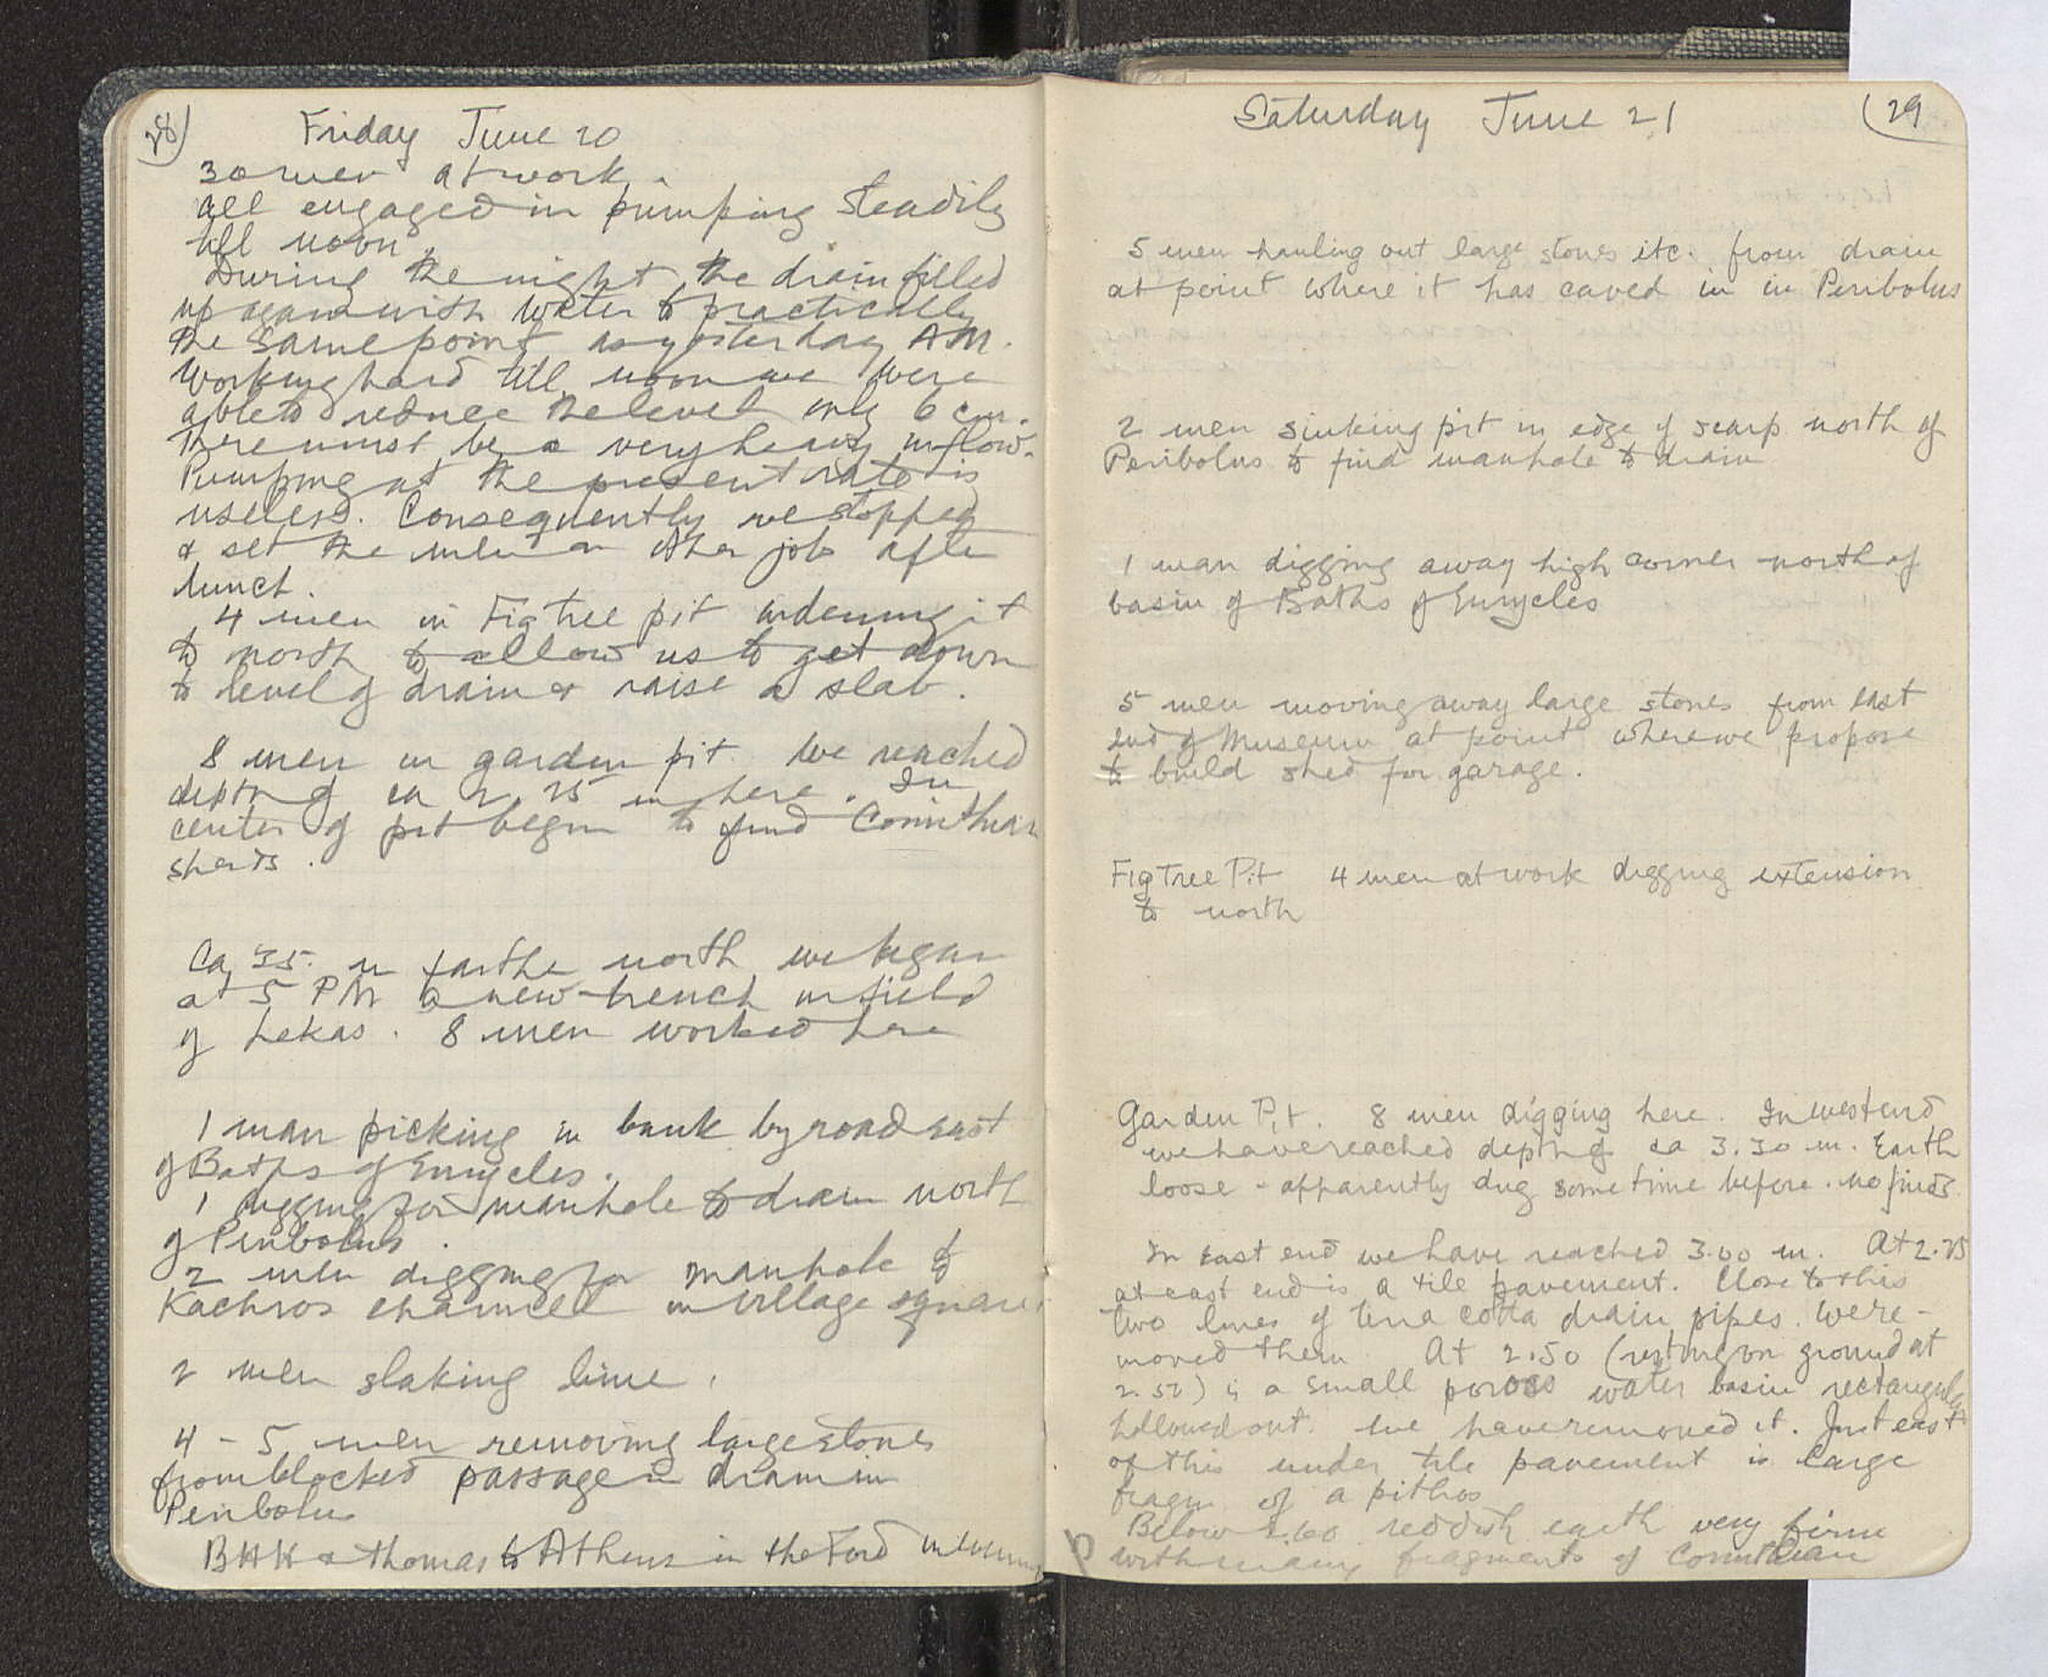 28
Friday June 20
30 men at work.
all engaged in pumping steadily
till noon.
During the night the drain filled
up again with water to practically
the same point as yesterday AM.
Working hard till noon we were
able to reduce the level only 6 cm.
There must be a very heavy inflow.
Pumping at the present rate is
useless. Consequently we stopped
& set the men on other job after
lunch.
4 men in Fig Tree pit widening it
to north to allow us to get down
to level of drain & raise a slab.
8 men in garden pit. We reached
depth of ca 2.25 m here. In
center of pit begin to find Corinthian
sherds.
Ca 35 m farther north we began
at 5 PM a new trench in field
of Lekas. 8 men worked here
1 man picking in bank by road east
of Baths of Eurycles.
1 digging for manhole to drain north
of Peribolus.
2 men digging for manhole to
Kachros channel in village square.
2 men slaking lime.
4 - 5 men removing large stones
from blocked passage in drain in
Peribolus
BHH & Thomas to Athens in the Ford
29
Saturday June 21
5 men hauling out large stones etc. from drain
at point where it has caved in in Peribolus
2 men sinking pit in edge of scarp north of
Peribolus to find manhole to drain
1 man digging away high corner north of
basin of Baths of Eurycles
5 men moving away large stones from east
end of Museum at point where we propose
to build shed for garage.
Fig Tree Pit 4 men at work digging extension
to north
Garden Pit. 8 men digging here. In west end
we have reached depth of ca 3.30 m. Earth
loose - apparently dug some time before. no finds.
In east end we have reached 3.00 m. At 2.25
at east end is a tile pavement. Close to this
two lines of terra cotta drain pipes. We re-
moved them. At 2.50 (resting on ground at
2.52) is a small poros water basin rectangular
hollowed out. We have removed it. Just east
of this under tile pavement is large
fragm. of a pithos
Below 2.60 reddish earth very firm
with many fragments of Corinthian